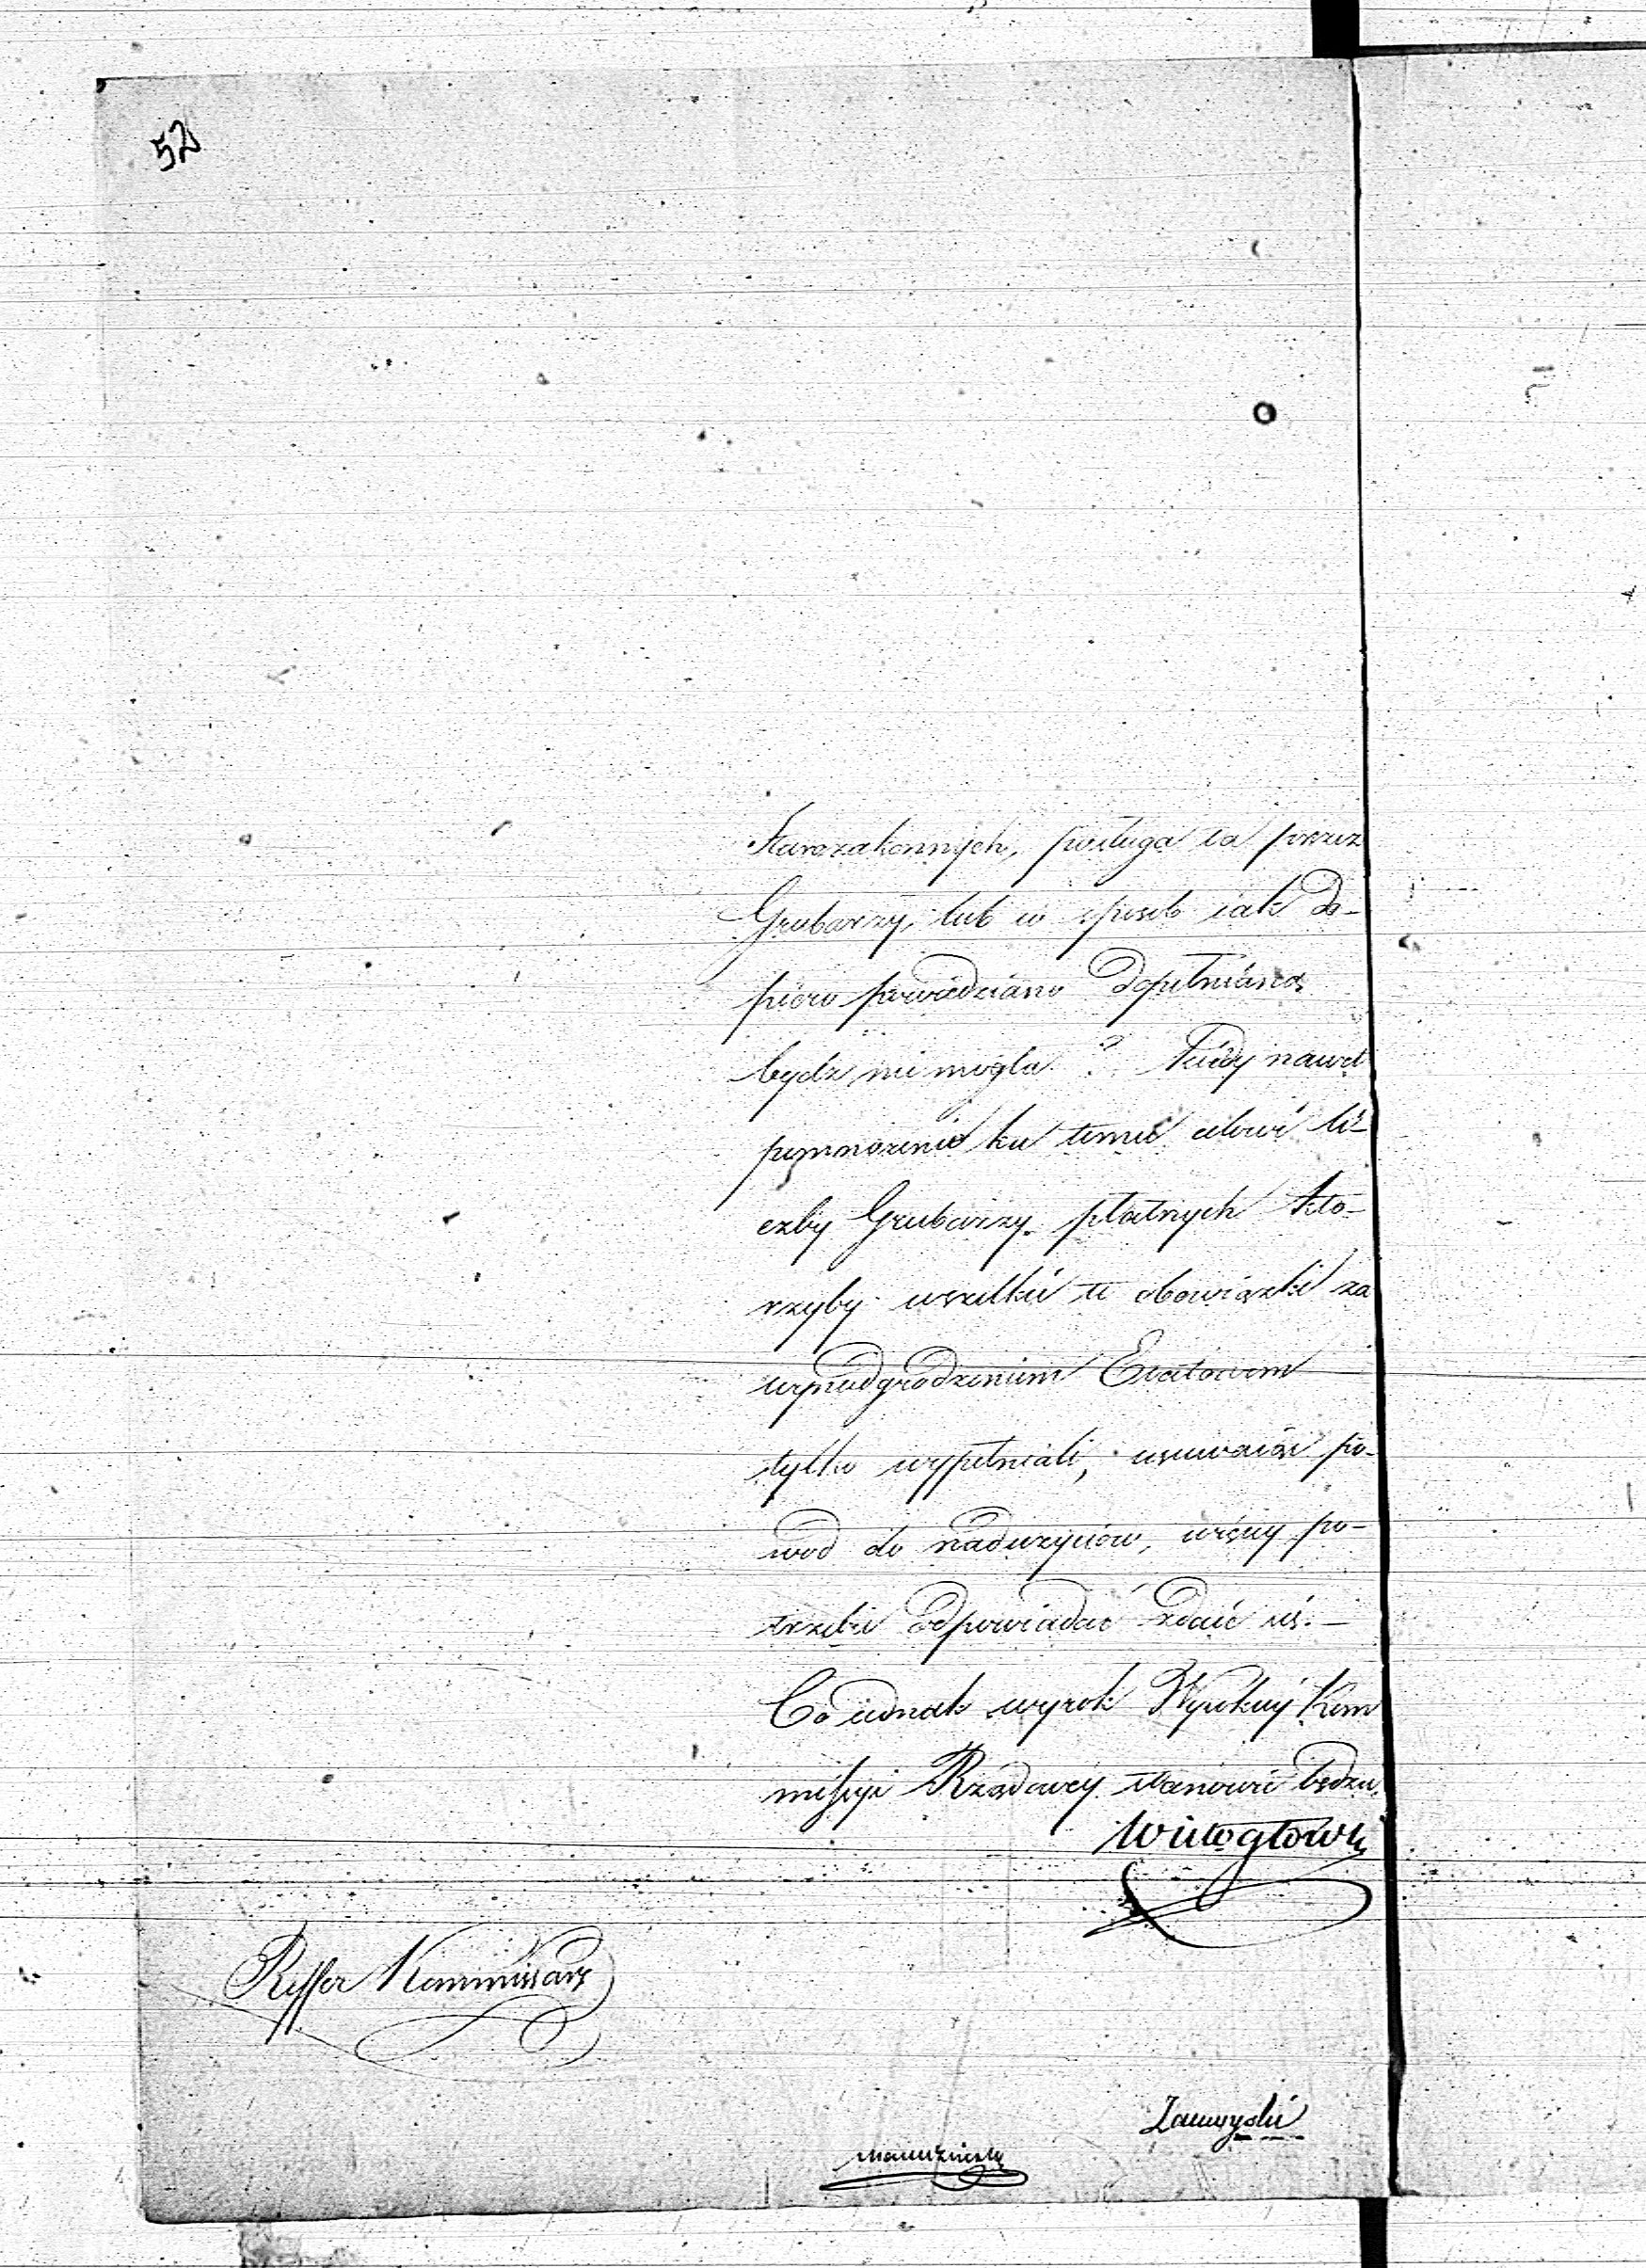 52
Starozakonnych, posługa ta przez
Grubarzy, lub w sposób iak do-
piero powiedziano dopełnianą
bydz nie mogła ? Kiedy nawet
pomnożenie ku temu celowi li-
czby Grubarzy płatnych któ-
rzyby wszelkie te obowiązki za
wynadgrodzeniem Etatowem
tylko wypełniali, usuwaiąc po-
wód do nadużyciów, więcey po-
trzebie odpowiadać zdaie się. —
Co iednak wyrok Wysokiey Kom
missyi Rządowey stanowić będzie.
Wielogłowski
Reffer Kommissarz
Zamoyski